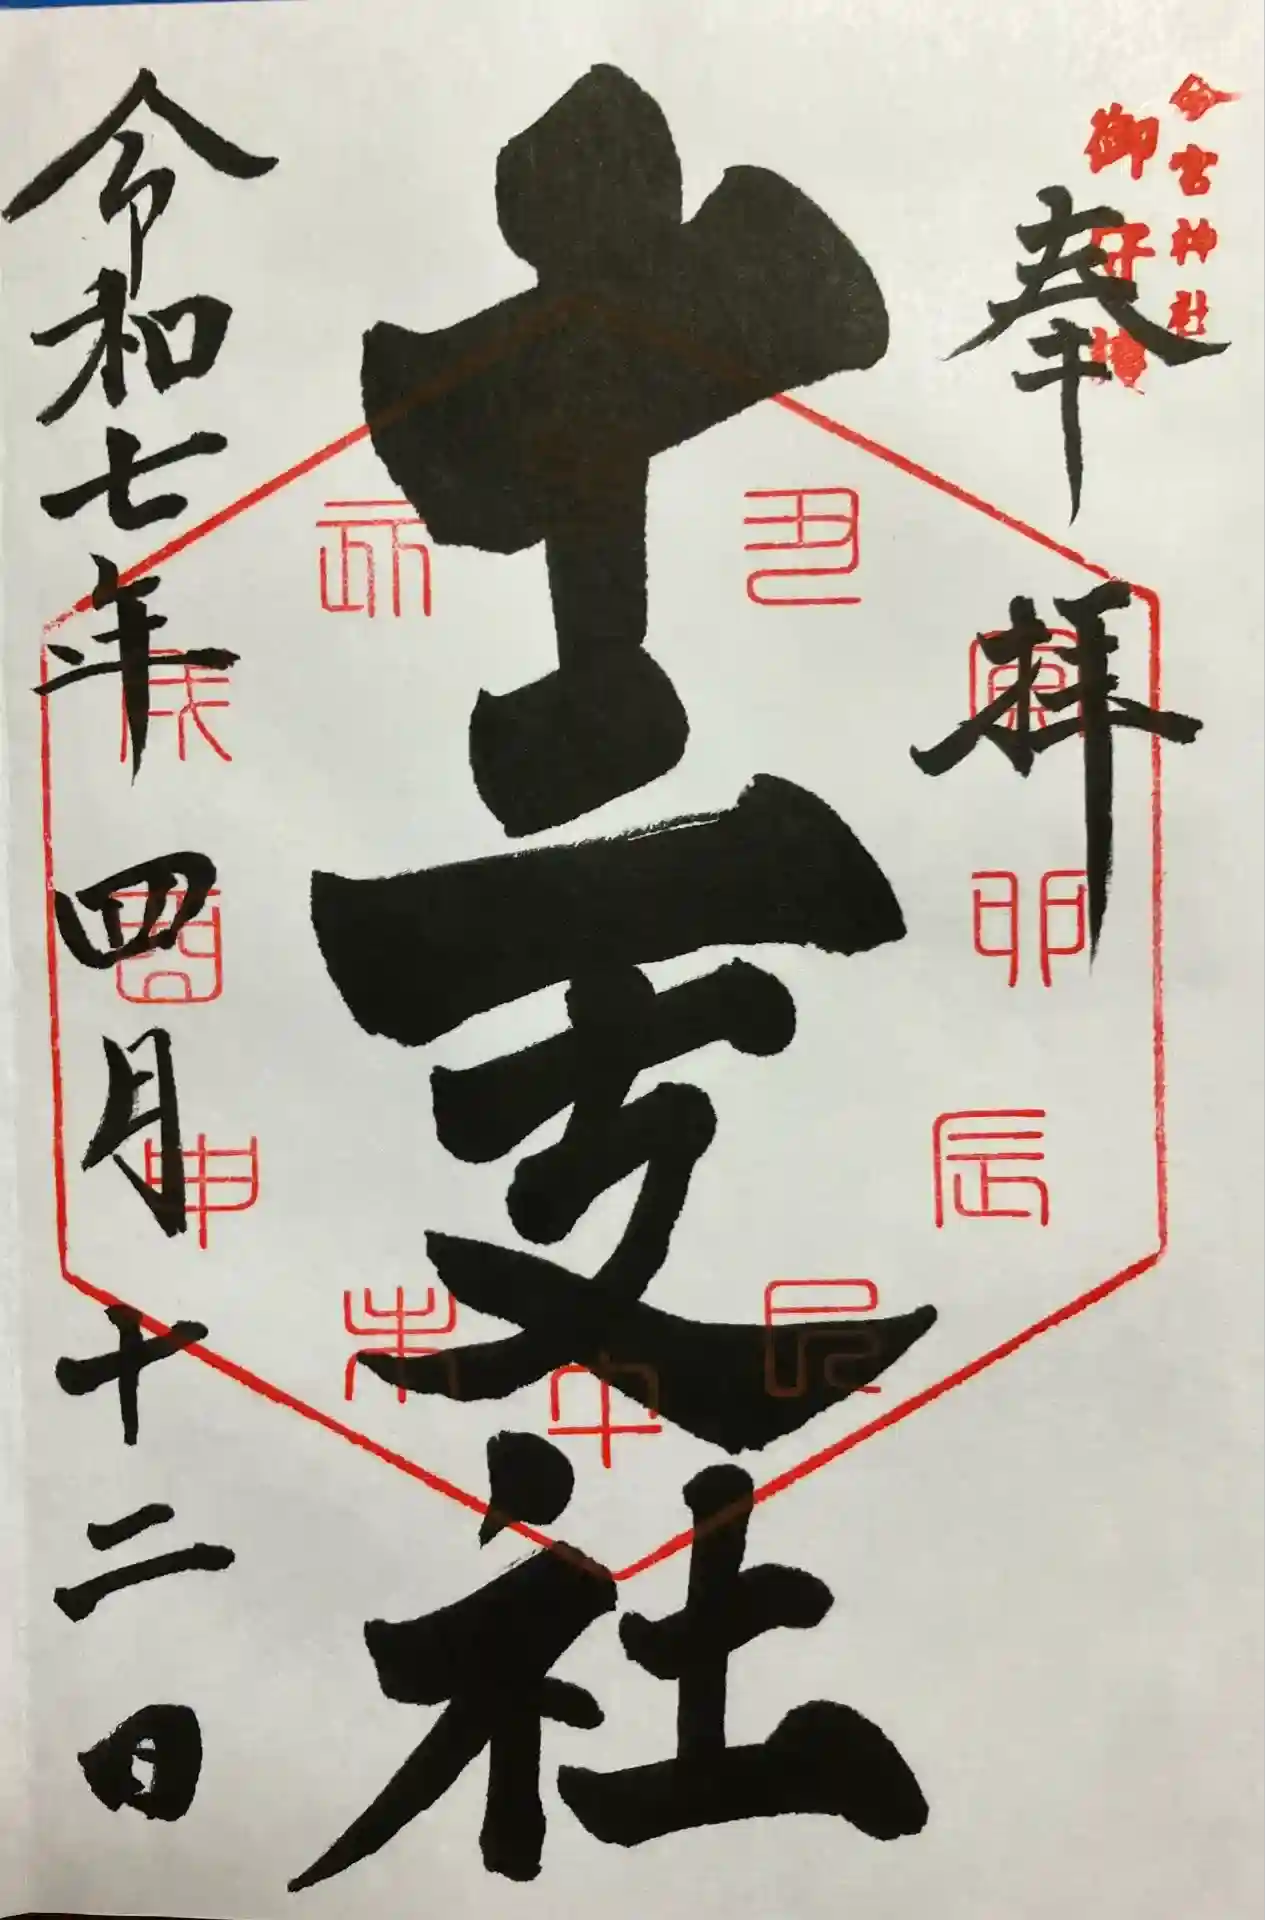 今宮神社
御守護
奉拝
十二支社
令和七年四月十二日
丑
寅
卯
辰
巳
午
未
申
酉
戌